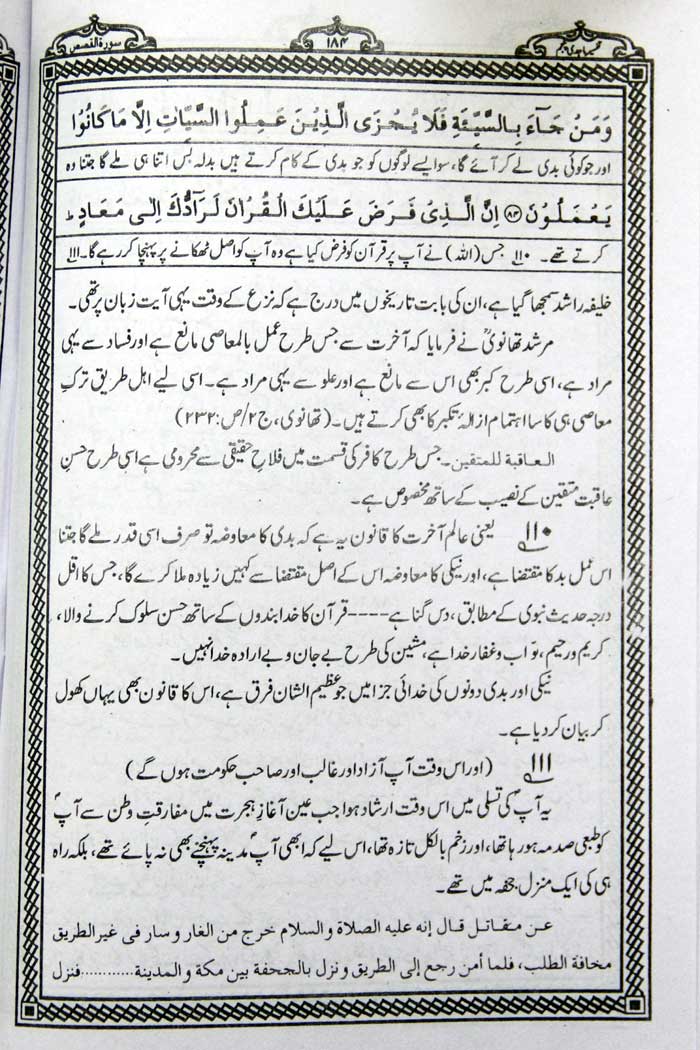 تفسیر ماجدی پنجم
۱۸۴
سورۃ القصص
وَمَنْ جَآءَ بِالسَّيِّئَةِ فَلَا يُجْزَى الَّذِيْنَ عَمِلُوا السَّيِّاٰتِ اِلَّا مَا كَانُوْا
اور جو کوئی بدی لے کر آئے گا، سو ایسے لوگوں کو جو بدی کے کام کرتے ہیں بدلہ بس اتنا ہی ملے گا جتنا وہ
يَعْمَلُوْنَ ﴿۸۴﴾ اِنَّ الَّذِىْ فَرَضَ عَلَيْكَ الْقُرْاٰنَ لَرَآدُّكَ اِلٰى مَعَادٍ ط
کرتے تھے۔ ۱۱۰ جس (اللہ) نے آپ پر قرآن کو فرض کیا ہے وہ آپ کو اصل ٹھکانے پر پہنچا کر رہے گا۔ ۱۱۱
خلیفہ راشد سمجھا گیا ہے، ان کی بابت تاریخوں میں درج ہے کہ نزع کے وقت یہی آیت زبان پر تھی۔
مرشد تھانویؒ نے فرمایا کہ آخرت سے جس طرح عمل بالمعاصی مانع ہے اور فساد سے یہی
مراد ہے، اسی طرح کبر بھی اس سے مانع ہے اور علو سے یہی مراد ہے۔ اسی لیے اہل طریق ترکِ
معاصی ہی کا سا اہتمام ازالۂ تکبر کا بھی کرتے ہیں۔ (تھانوی، ج ۲/ص: ۲۳۲)
العاقبة للمتقين۔ جس طرح کافر کی قسمت میں فلاحِ حقیقی سے محرومی ہے اسی طرح حسنِ
عاقبت متقین کے نصیب کے ساتھ مخصوص ہے۔
۱۱۰ یعنی عالم آخرت کا قانون یہ ہے کہ بدی کا معاوضہ تو صرف اسی قدر ملے گا جتنا
اس عمل بد کا مقتضا ہے، اور نیکی کا معاوضہ اس کے اصل مقتضا سے کہیں زیادہ ملا کرے گا، جس کا اقل
درجہ حدیث نبوی کے مطابق، دس گنا ہے----قرآن کا خدا بندوں کے ساتھ حسن سلوک کرنے والا،
کریم و رحیم، تواب و غفار خدا ہے، مشین کی طرح بے جان و بے ارادہ خدا نہیں۔
نیکی اور بدی دونوں کی خدائی جزا میں جو عظیم الشان فرق ہے، اس کا قانون بھی یہاں کھول
کر بیان کر دیا ہے۔
۱۱۱ (اور اس وقت آپ آزاد اور غالب اور صاحب حکومت ہوں گے)
یہ آپؐ کی تسلی میں اس وقت ارشاد ہوا جب عین آغازِ ہجرت میں مفارقتِ وطن سے آپؐ
کو طبعی صدمہ ہو رہا تھا، اور زخم بالکل تازہ تھا، اس لیے کہ ابھی آپؐ مدینہ پہنچنے بھی نہ پائے تھے، بلکہ راہ
ہی کی ایک منزل جحفہ میں تھے۔
عن مقاتل قال إنه عليه الصلاة والسلام خرج من الغار وسار فى غير الطريق
مخافة الطلب، فلما أمن رجع إلى الطريق ونزل بالجحفة بين مكة والمدينة............فنزل